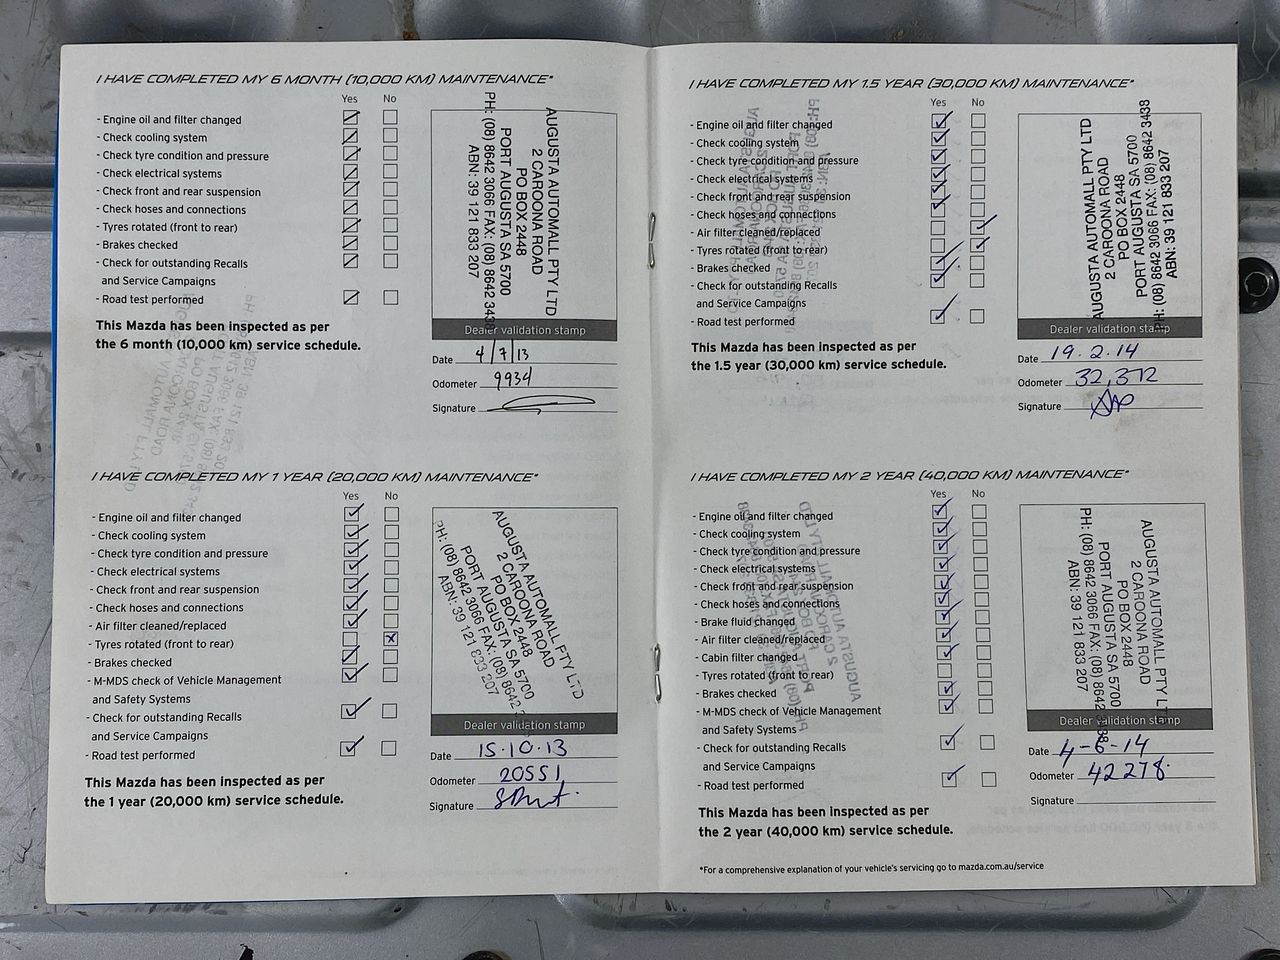 I HAVE COMPLETED MY 6 MONTH (10,000 KM) MAINTENANCE*
Yes No
- Engine oil and filter changed
- Check cooling system
- Check tyre condition and pressure
- Check electrical systems
- Check front and rear suspension
- Check hoses and connections
- Tyres rotated (front to rear)
- Brakes checked
- Check for outstanding Recalls
and Service Campaigns
- Road test performed
This Mazda has been inspected as per
the 6 month (10,000 km) service schedule.
AUGUSTA AUTOMALL PTY LTD
2 CAROONA ROAD
PO BOX 2448
PORT AUGUSTA SA 5700
PH: (08) 8642 3066 FAX: (08) 8642 3438
ABN: 39 121 833 207
Dealer validation stamp
Date 4/7/13
Odometer 9934
Signature
I HAVE COMPLETED MY 1 YEAR (20,000 KM) MAINTENANCE*
Yes No
- Engine oil and filter changed
- Check cooling system
- Check tyre condition and pressure
- Check electrical systems
- Check front and rear suspension
- Check hoses and connections
- Air filter cleaned/replaced
- Tyres rotated (front to rear)
- Brakes checked
- M-MDS check of Vehicle Management
and Safety Systems
- Check for outstanding Recalls
and Service Campaigns
- Road test performed
This Mazda has been inspected as per
the 1 year (20,000 km) service schedule.
AUGUSTA AUTOMALL PTY LTD
2 CAROONA ROAD
PO BOX 2448
PORT AUGUSTA SA 5700
PH: (08) 8642 3066 FAX: (08) 8642
ABN: 39 121 833 207
Dealer validation stamp
Date 15.10.13
Odometer 20551
Signature
I HAVE COMPLETED MY 1.5 YEAR (30,000 KM) MAINTENANCE*
Yes No
- Engine oil and filter changed
- Check cooling system
- Check tyre condition and pressure
- Check electrical systems
- Check front and rear suspension
- Check hoses and connections
- Air filter cleaned/replaced
- Tyres rotated (front to rear)
- Brakes checked
- Check for outstanding Recalls
and Service Campaigns
- Road test performed
This Mazda has been inspected as per
the 1.5 year (30,000 km) service schedule.
AUGUSTA AUTOMALL PTY LTD
2 CAROONA ROAD
PO BOX 2448
PORT AUGUSTA SA 5700
PH: (08) 8642 3066 FAX: (08) 8642 3438
ABN: 39 121 833 207
Dealer validation stamp
Date 19.2.14
Odometer 32,372
Signature
I HAVE COMPLETED MY 2 YEAR (40,000 KM) MAINTENANCE*
Yes No
- Engine oil and filter changed
- Check cooling system
- Check tyre condition and pressure
- Check electrical systems
- Check front and rear suspension
- Check hoses and connections
- Brake fluid changed
- Air filter cleaned/replaced
- Cabin filter changed
- Tyres rotated (front to rear)
- Brakes checked
- M-MDS check of Vehicle Management
and Safety Systems
- Check for outstanding Recalls
and Service Campaigns
- Road test performed
This Mazda has been inspected as per
the 2 year (40,000 km) service schedule.
AUGUSTA AUTOMALL PTY LTD
2 CAROONA ROAD
PO BOX 2448
PORT AUGUSTA SA 5700
PH: (08) 8642 3066 FAX: (08) 8642 3438
ABN: 39 121 833 207
Dealer validation stamp
Date 4-6-14
Odometer 42278
Signature
*For a comprehensive explanation of your vehicle's servicing go to mazda.com.au/service